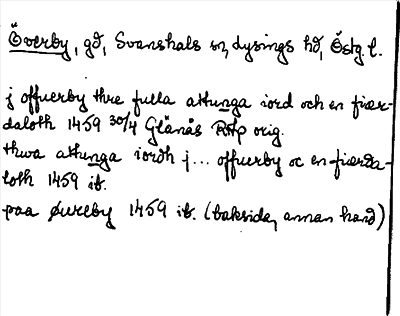 Överby, gd, Svanshals sn, dysings hd, Östg. l.
j offuerby thre fulla attunga iord och en fiær-
daloth 1459 30/4 Glänås RAp orig.
thwa attunga iordh j... offuerby oc en fiærda-
loth 1459 ib.
paa øwreby 1459 ib. (baksida, annan hand)